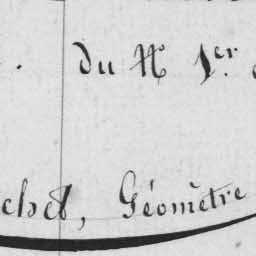 du N 1er
chet, Géomètre